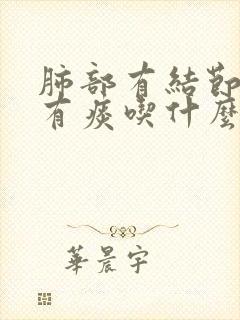 肺部有結節
有痰喫什麼
華晨宇